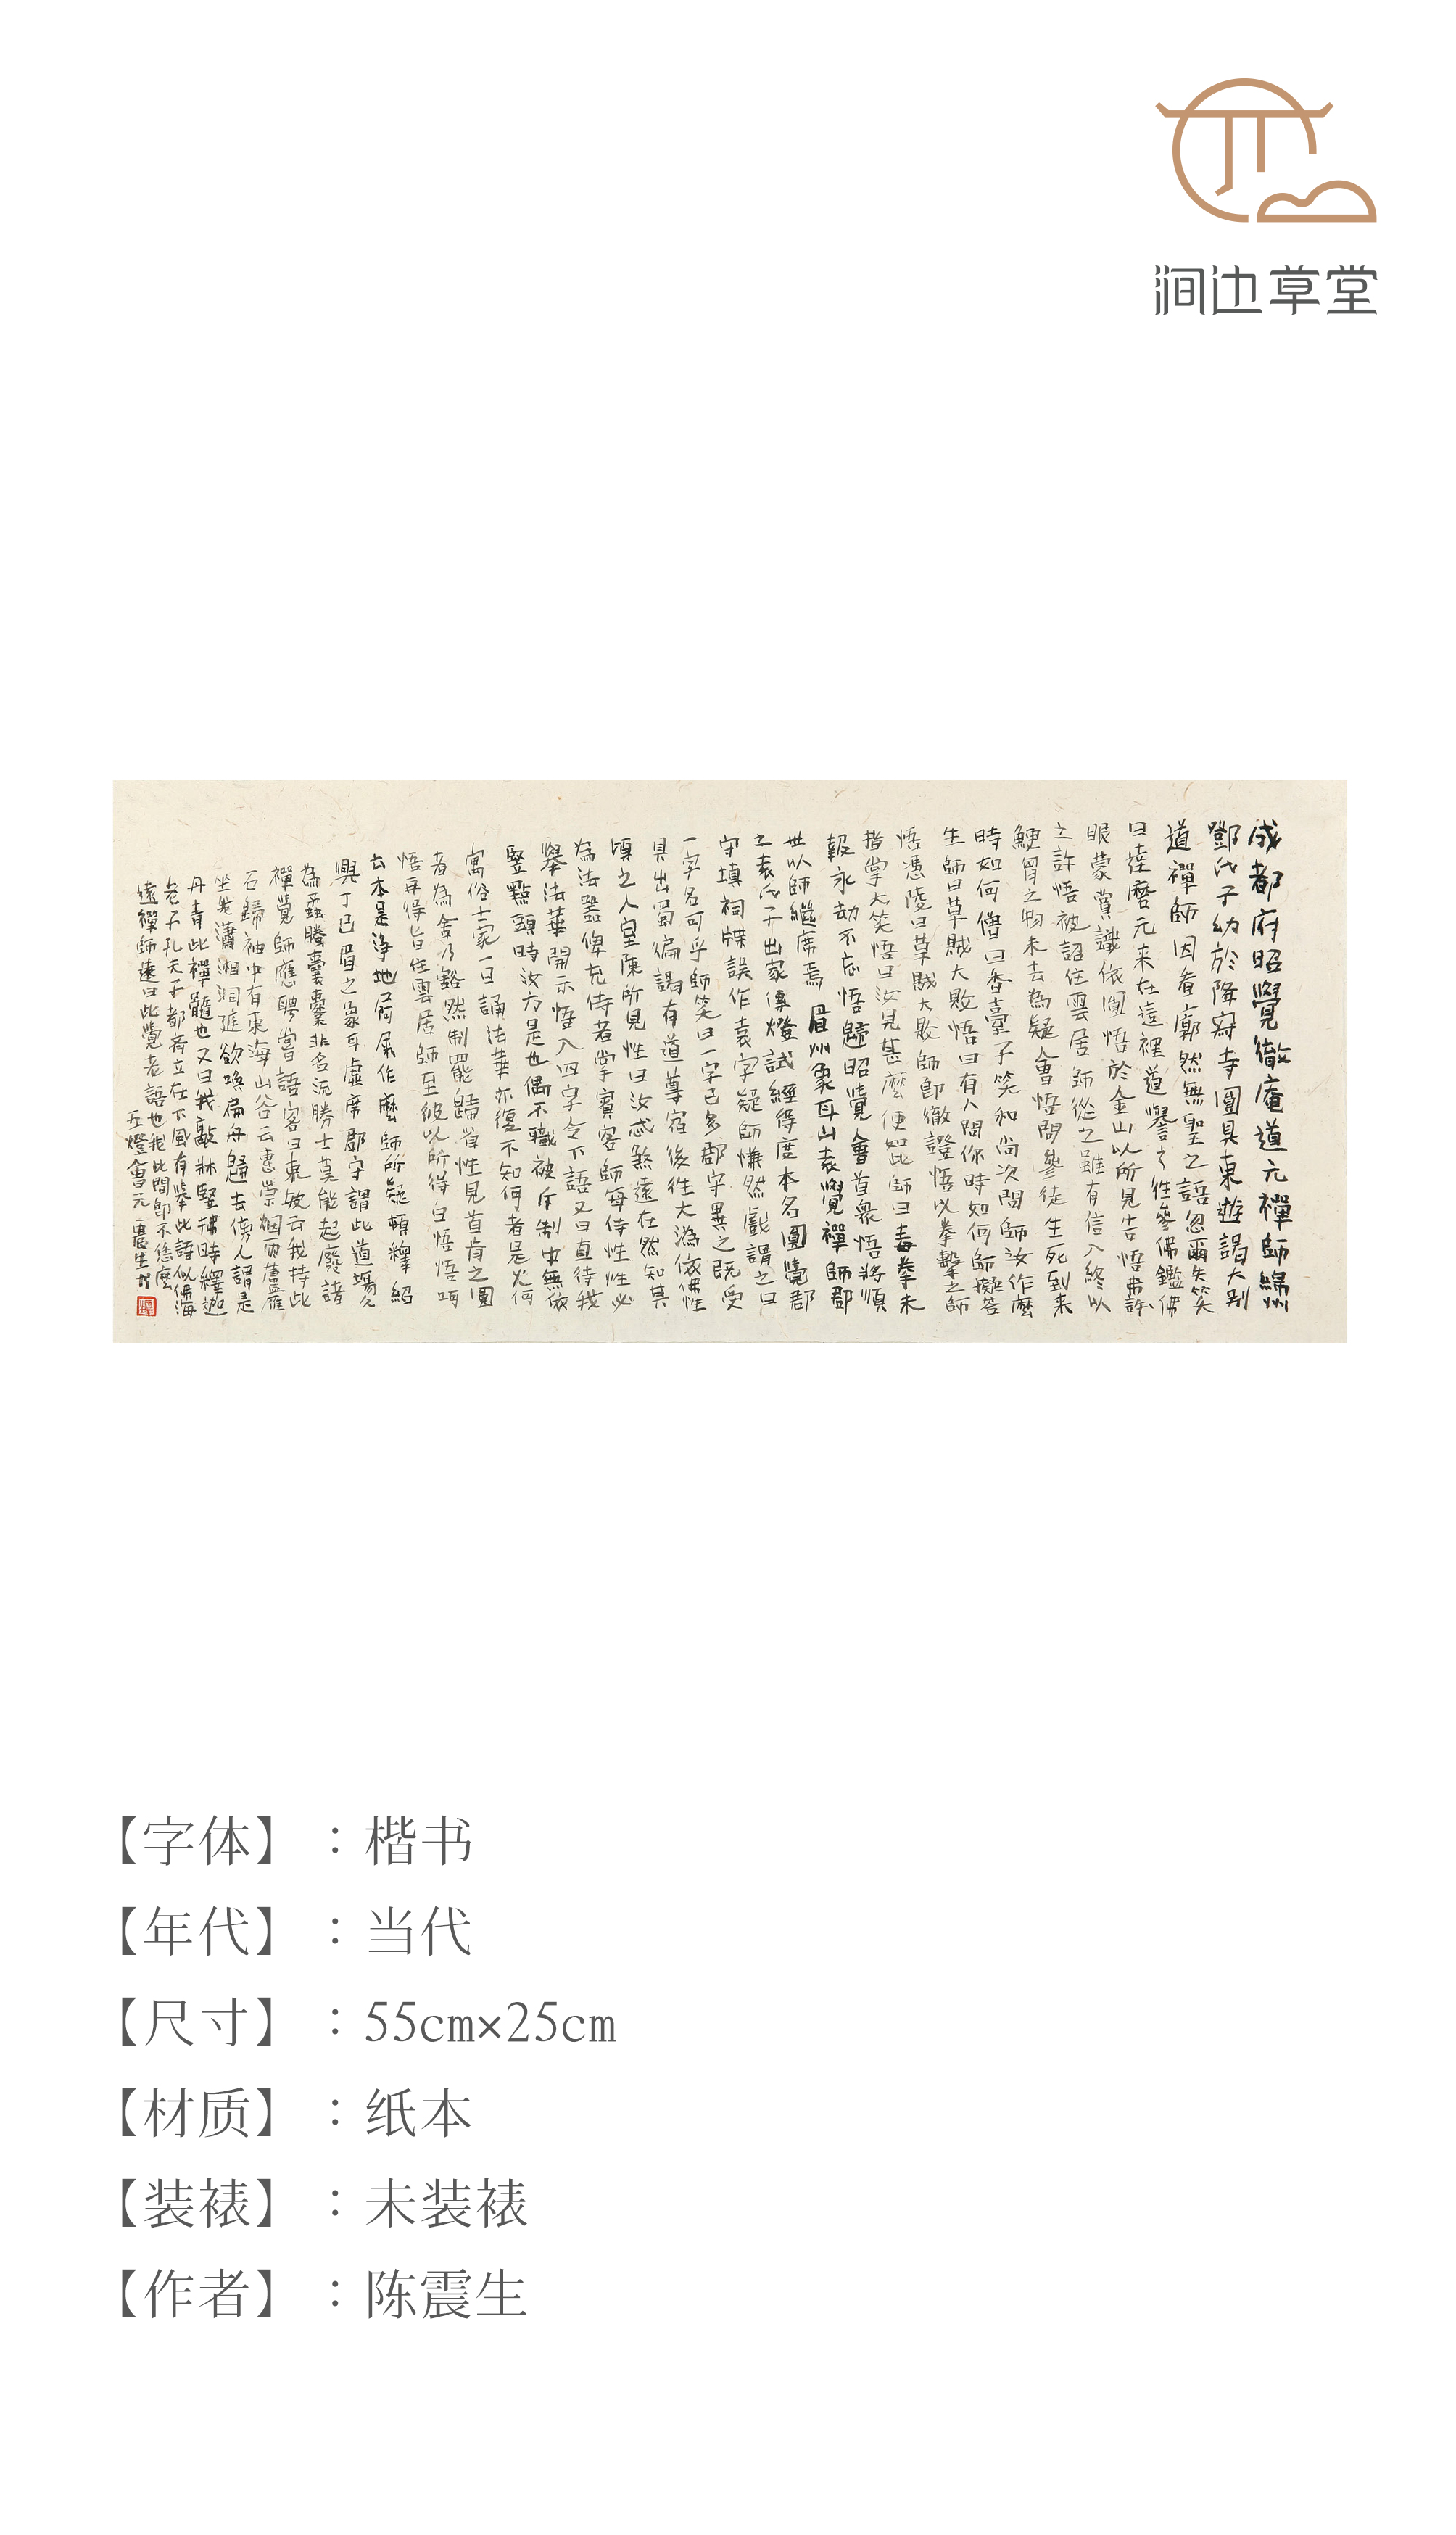 涧边草堂
成都府昭覺徹庵道元禪師綿州
鄧氏子幼於降寂寺圓具東遊謁大别
道禪師因看廓然無聖之語忽爾失笑
曰達磨元来在這裡道譽之徃參佛鑑佛
眼蒙賞識依圓悟於金山以所見告悟弗許
之許悟被詔住雲居師從之雖有信入終以
鯁胷之物未去為疑會悟問參徒生死到来
時如何僧曰香臺子笑和尚次問師汝作麼
生師曰草賊大敗悟曰有人問你時如何師擬答
悟憑陵曰草賊大敗師即徹證悟以拳擊之師
指掌大笑悟曰汝見甚麼便如此師曰毒拳未
報永劫不忘悟歸昭覺會首眾悟將順
世以師繼席焉 眉州象耳山袁覺禪師郡
之袁氏子出家傳燈試經得度本名圓覺郡
守填祠牒誤作袁字疑師慊然戲謂之曰
一字名可乎師笑曰一字已多郡守異之既受
具出蜀徧謁有道尊宿後徃大溈依佛性
頃之入室陳所見性曰汝忒煞遠在然知其
為法器俾充侍者掌賓客師每侍性性必
舉法華開示悟入四字令下語又曰直待我
竪點頭時汝方是也偶不職被斥制中無依
寓俗士家一日誦法華亦復不知何者是火何
者為舍乃豁然制罷歸省性見首肯之圓
悟再得旨住雲居師至彼以所得白悟悟呵
云本是淨地屙屎作麼師所疑頓釋紹
興丁巳眉之象耳虛席郡守謂此道場久
為蟊螣囊橐非名流勝士莫能起廢諸
禪覺師應聘嘗語客曰東坡云我持此
石歸袖中有東海山谷云惠崇烟雨蘆雁
坐我瀟湘洞庭欲喚扁舟歸去傍人謂是
丹青此禪髓也又曰我敲牀竪拂時釋迦
老子孔夫子都齊立在下風有舉此語似佛海
遠禪師遠曰此覺老語也我此間即不恁麼
五燈會元 震生書
【字体】：楷书
【年代】：当代
【尺寸】：55cm×25cm
【材质】：纸本
【装裱】：未装裱
【作者】：陈震生